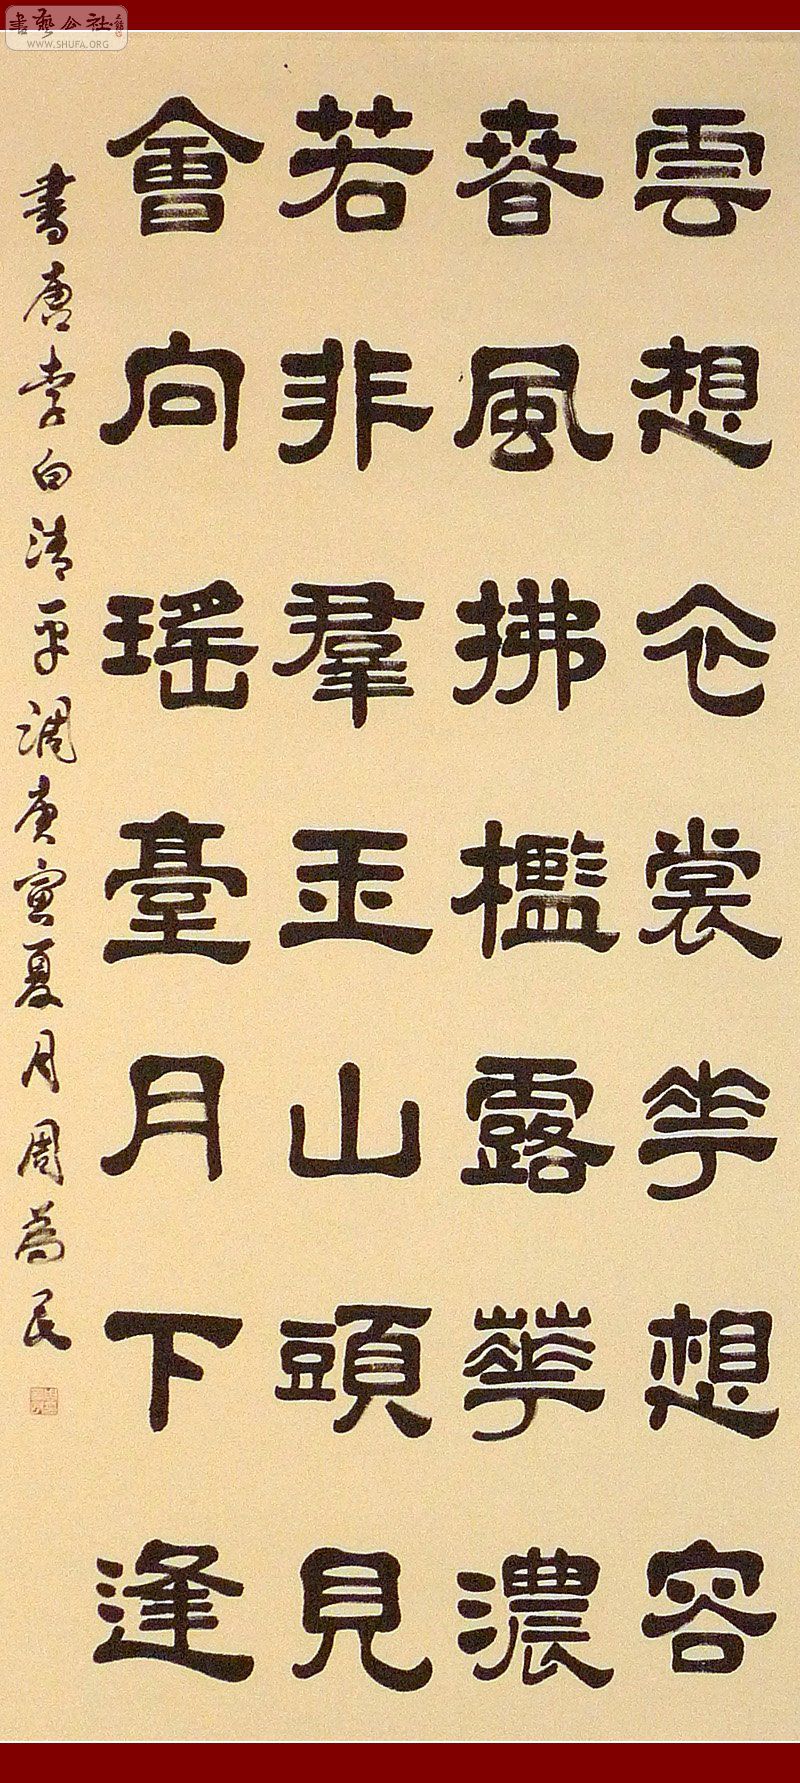 書藝公社
WWW.SHUFA.ORG
雲想衣裳花想容
春風拂檻露華濃
若非羣玉山頭見
會向瑤臺月下逢
書唐李白清平調庚寅夏月周為民